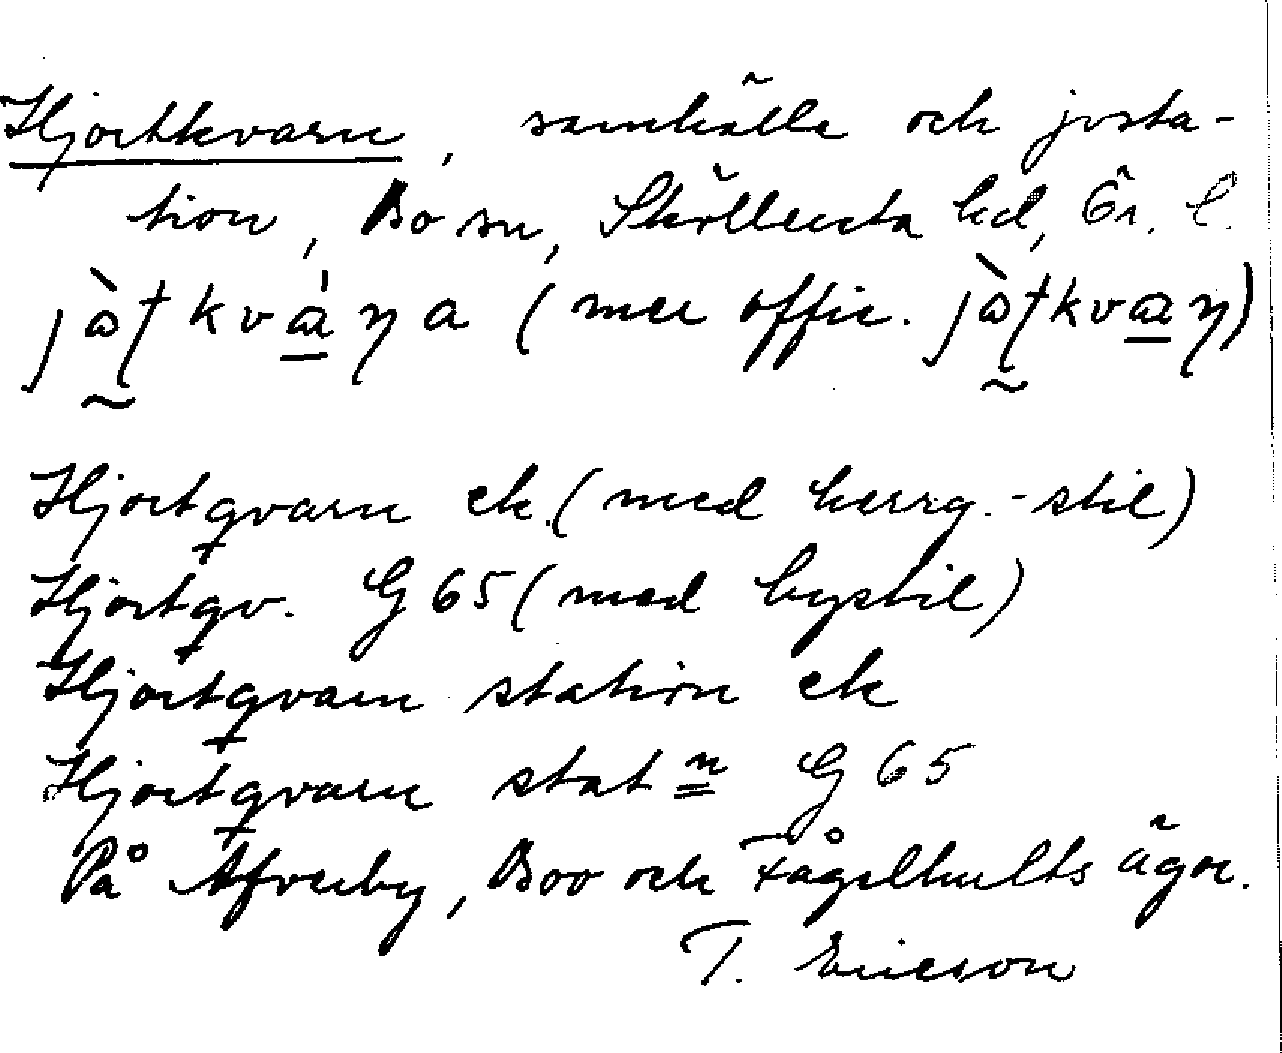 Hjortkvarn, samhälle och jvsta-
tion, Bo sn, Sköllersta hd, Ör. l.
(mer offic.
Hjortqvarn ek. (med herrg.-stil)
Hjortqv. G 65 (med bystil)
Hjortqvarn station ek
Hjortqvarn stat n G 65
På Afverby, Boo och Fågelhults ägor.
T. Ericson